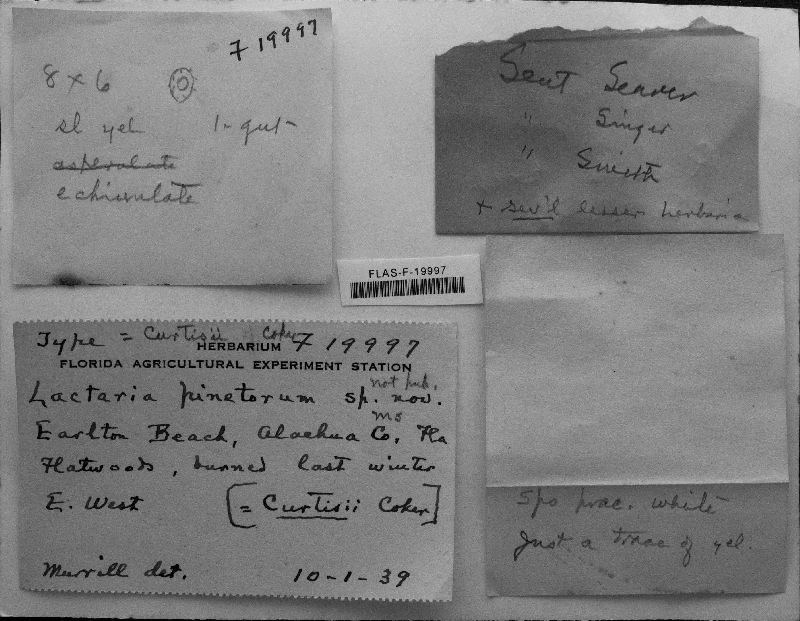 F 19997
8 x 6
sl yel 1-gut-
asperulate
echinulate
Sent Seaver
" Singer
" Smith
+ sev'l lesser herbaria
FLAS-F-19997
Type = Curtisii Coker F 19997
HERBARIUM
FLORIDA AGRICULTURAL EXPERIMENT STATION
not pub.
Lactaria pinetorum sp. nov.
ms
Earlton Beach, Alachua Co, Fla
Flatwoods, burned last winter
E. West [= Curtisii Coker]
Murrill det. 10-1-39
Spo prac. white
Just a trace of yel.